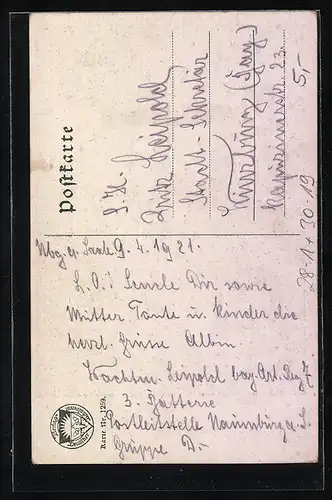 Postkarte
S. H.
Fritz Leipold
Stadt-Sekretär
Würzburg (Bay)
Kapuzinerstr. 23.
5,-
28-1 + 30-19
Nbg. a. Saale 9. 4. 1921.
L. O.! Sende Dir sowie
Mutter Tante u. Kinder die
herzl. Grüsse Albin
Wachtm. Leipold bay. Art. Reg 7
3. Batterie
Postleitstelle Naumburg a. S.
Gruppe D.-
Karte Nr. 1259.